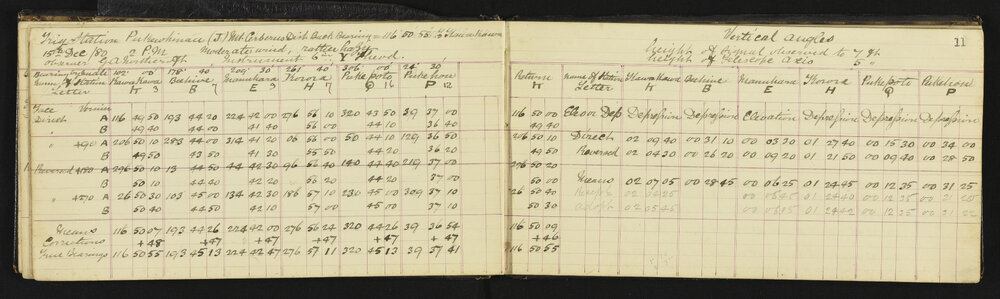 Trig Station Pukewhinau (J) Mt. Cerberus Dist Back Bearing = 116 50 55 to Hawahawa
15th Dec /80 2 P.M Moderate wind, rather hazy
observer Instrument 6 in
Bearing 102° 00' 178° 40' 209° 30' 261° 40' 306° 24° 30'
Name Hawahawa Beehive Maunuhara Horora Pukepoto Pukehron
Letter H 3 B 7 E 3 H 7 Q 16 P 12
Face Vernier
Direct A 116 49 50 193 44 20 224 42 00 276 56 10 320 43 50 39 37 00
B 49 40 44 00 41 40 56 00 44 10 36 40
" +90 A 206 50 10 283 44 00 314 41 50 06 56 00 50 44 10 129 36 50
B 49 50 43 50 41 30 55 50 44 20 36 20
Reversed +180 A 296 50 10 13 44 50 44 42 20 96 56 40 140 44 40 219 37 00
B 50 10 44 40 42 20 56 20 44 20 37 00
" +270 A 26 50 30 103 45 00 134 42 30 186 57 10 230 45 00 309 37 10
B 50 40 44 50 42 10 57 00 45 00 37 10
Means 116 50 07 193 44 26 224 42 00 276 56 24 320 44 26 39 36 54
Corrections +48 +47 +47 +47 +47 +47
True Bearings 116 50 55 193 45 13 224 42 47 276 57 11 320 45 13 39 37 41
11
Vertical Angles
height of Signal observed to 7 ft
height of Telescope Axis 5 "
Return Name of Station Hawahawa Beehive Maunuhara Horora Pukepoto Pukehron
H Letter H B E H Q P
116 50 00 Elev or Dep Depression Depression Elevation Depression Depression Depression
49 40
206 50 10 Direct 02 09 40 00 31 10 00 03 30 01 27 40 00 15 30 00 34 00
49 50 Reversed 02 04 30 00 26 20 00 09 20 01 21 50 00 09 40 00 28 50
296 50 20
50 00 Means 02 07 05 00 28 45 00 06 25 01 24 45 00 12 35 00 31 25
26 50 40
50 30 adopt
Means 116 50 09
+46
116 50 55